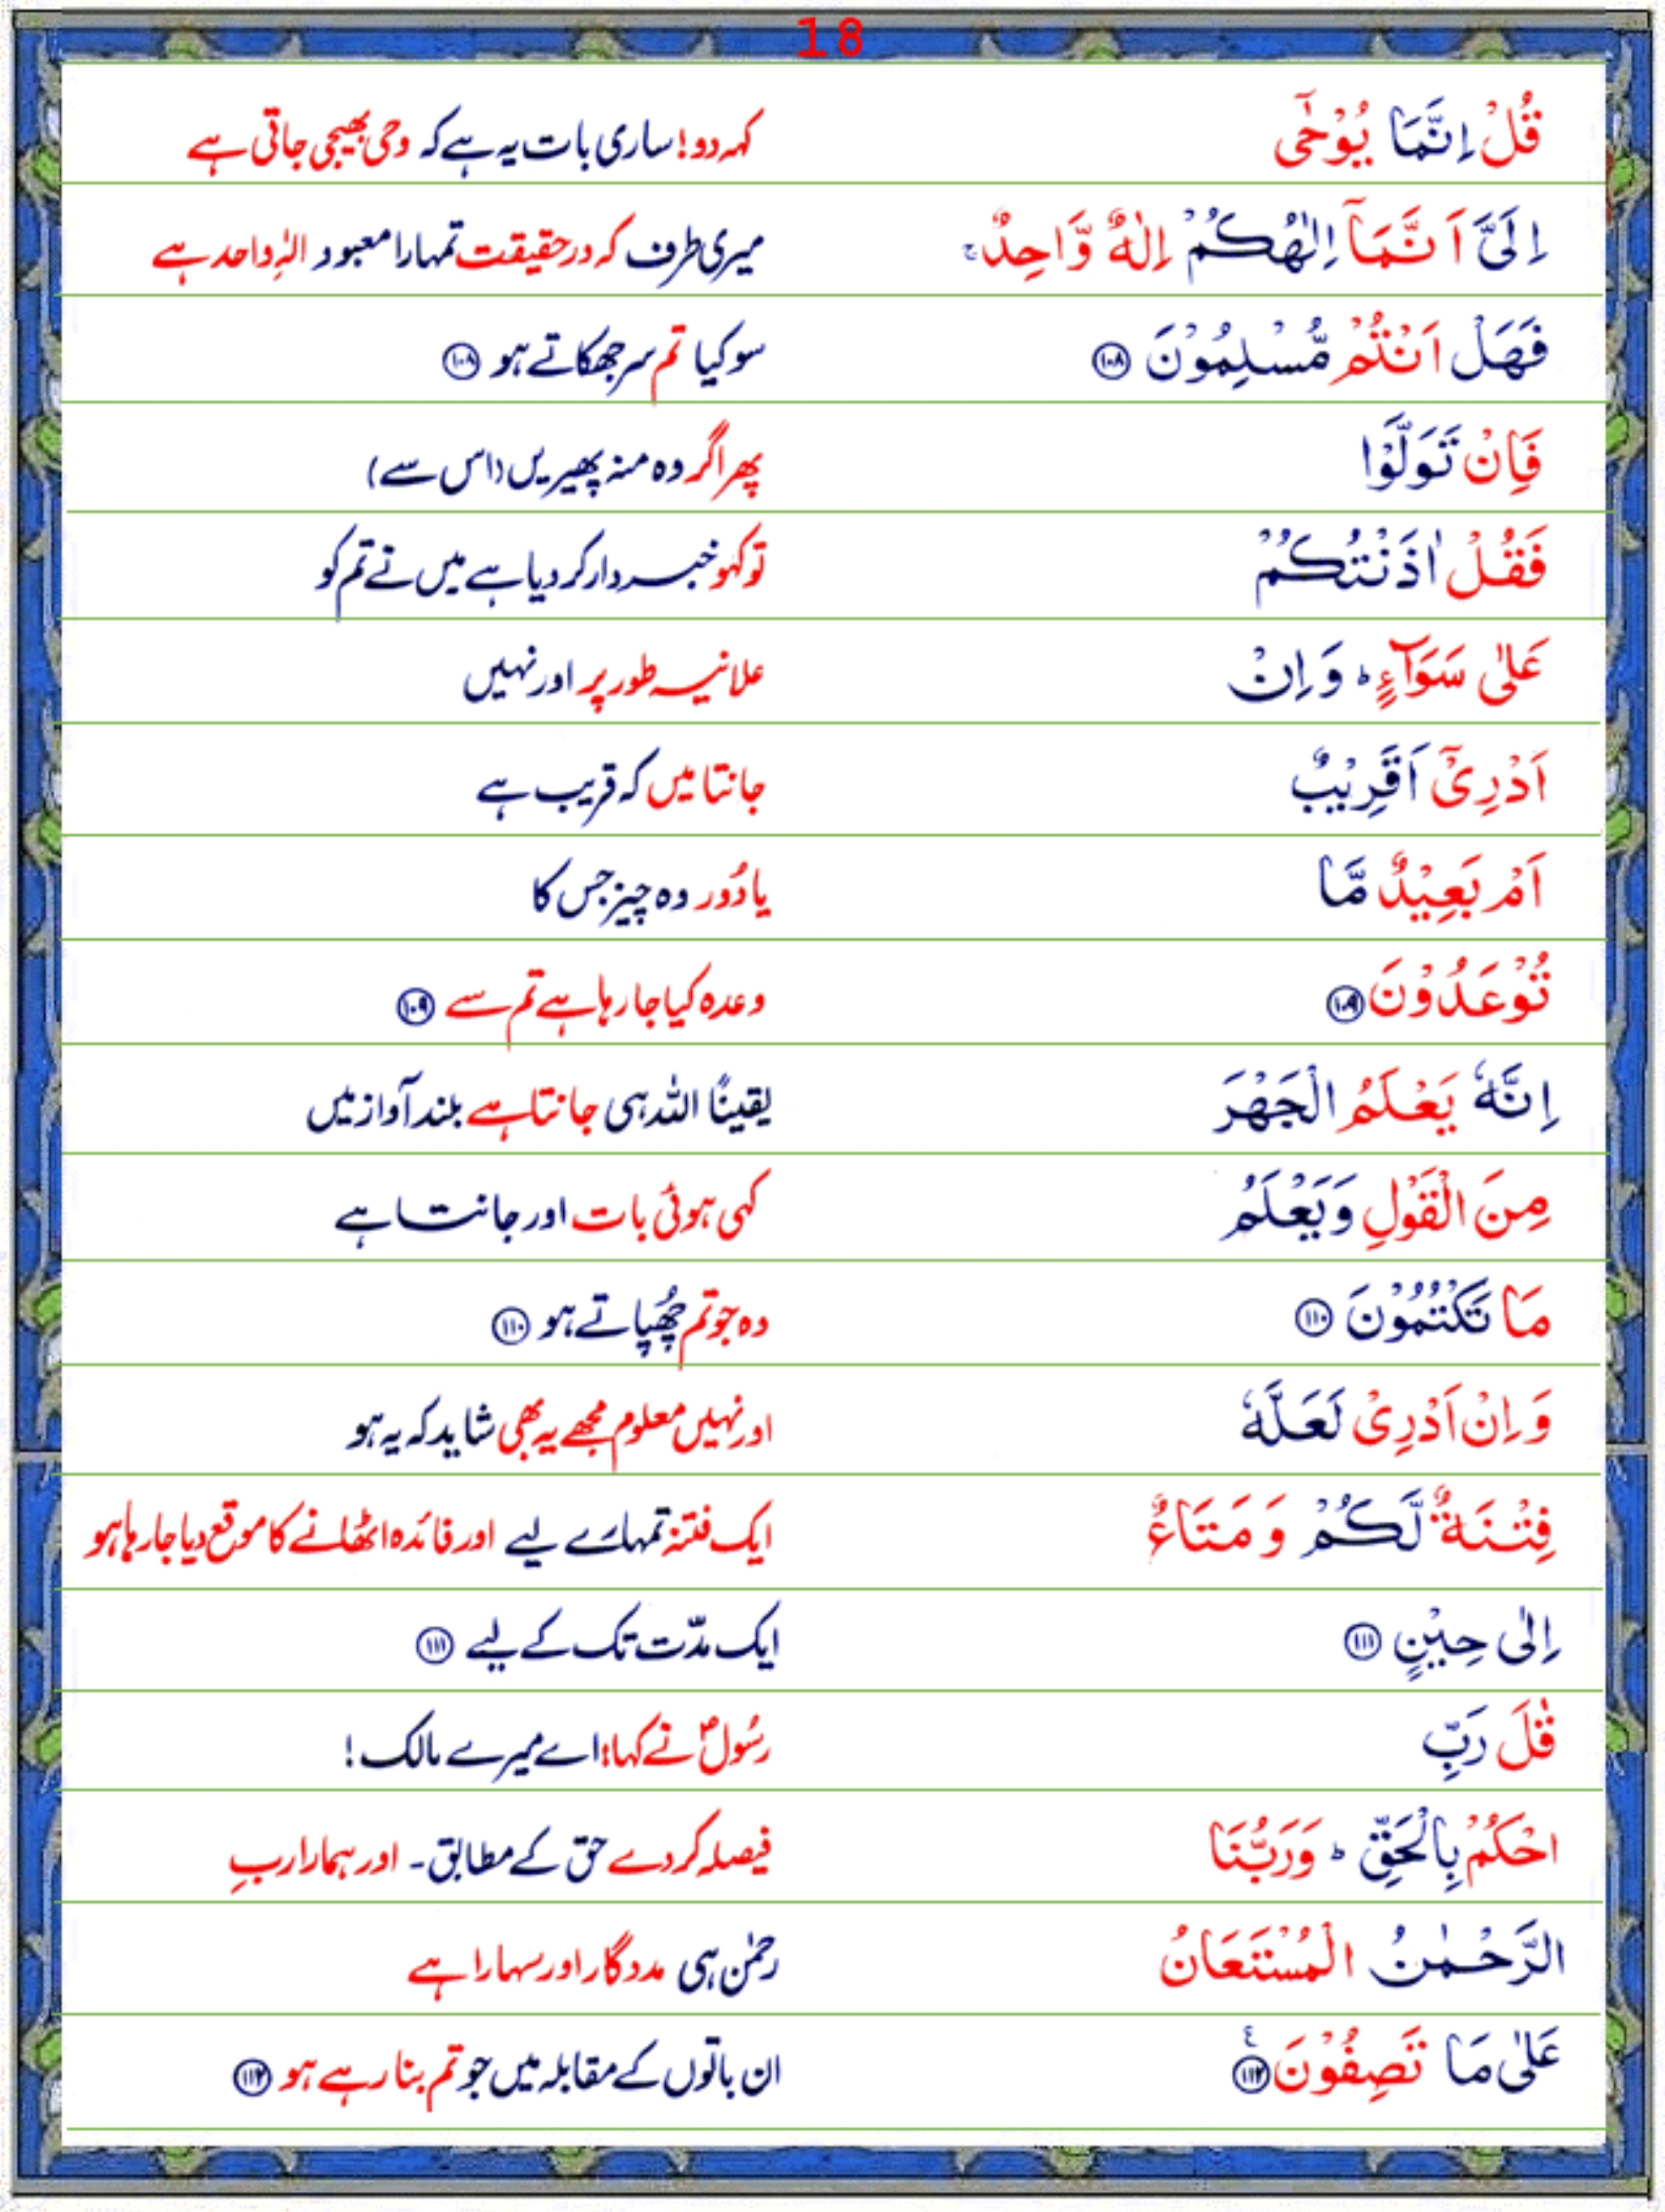 18
قُلْ اِنَّمَا يُوْحٰٓى کہہ دو! ساری بات یہ ہے کہ وحی بھیجی جاتی ہے
اِلَىَّ اَنَّمَآ اِلٰهُكُمْ اِلٰهٌ وَّاحِدٌ ۚ میری طرف کہ درحقیقت تمہارا معبود الٰہِ واحد ہے
فَهَلْ اَنْتُمْ مُّسْلِمُوْنَ ۝۱۰۸ سو کیا تم سر جھکاتے ہو ۝۱۰۸
فَاِنْ تَوَلَّوْا پھر اگر وہ منہ پھیریں (اس سے)
فَقُلْ اٰذَنْتُكُمْ تو کہو خبردار کر دیا ہے میں نے تم کو
عَلٰى سَوَآءٍ ؕ وَ اِنْ علانیہ طور پر اور نہیں
اَدْرِىْٓ اَقَرِيْبٌ جانتا میں کہ قریب ہے
اَمْ بَعِيْدٌ مَّا یا دُور وہ چیز جس کا
تُوْعَدُوْنَ ۝۱۰۹ وعدہ کیا جا رہا ہے تم سے ۝۱۰۹
اِنَّهٗ يَعْلَمُ الْجَهْرَ یقیناً اللہ ہی جانتا ہے بلند آواز میں
مِنَ الْقَوْلِ وَيَعْلَمُ کہی ہوئی بات اور جانتا ہے
مَا تَكْتُمُوْنَ ۝۱۱۰ وہ جو تم چُھپاتے ہو ۝۱۱۰
وَ اِنْ اَدْرِىْ لَعَلَّهٗ اور نہیں معلوم مجھے یہ بھی شاید کہ یہ ہو
فِتْنَةٌ لَّكُمْ وَ مَتَاعٌ ایک فتنہ تمہارے لیے اور فائدہ اٹھانے کا موقع دیا جا رہا ہو
اِلٰى حِيْنٍ ۝۱۱۱ ایک مدّت تک کے لیے ۝۱۱۱
قٰلَ رَبِّ رسُولؐ نے کہا: اے میرے مالک!
احْكُمْ بِالْحَقِّ ؕ وَرَبُّنَا فیصلہ کر دے حق کے مطابق۔ اور ہمارا ربِ
الرَّحْمٰنُ الْمُسْتَعَانُ رحمٰن ہی مددگار اور سہارا ہے
عَلٰى مَا تَصِفُوْنَ ۝۱۱۲ ۧ ان باتوں کے مقابلہ میں جو تم بنا رہے ہو ۝۱۱۲